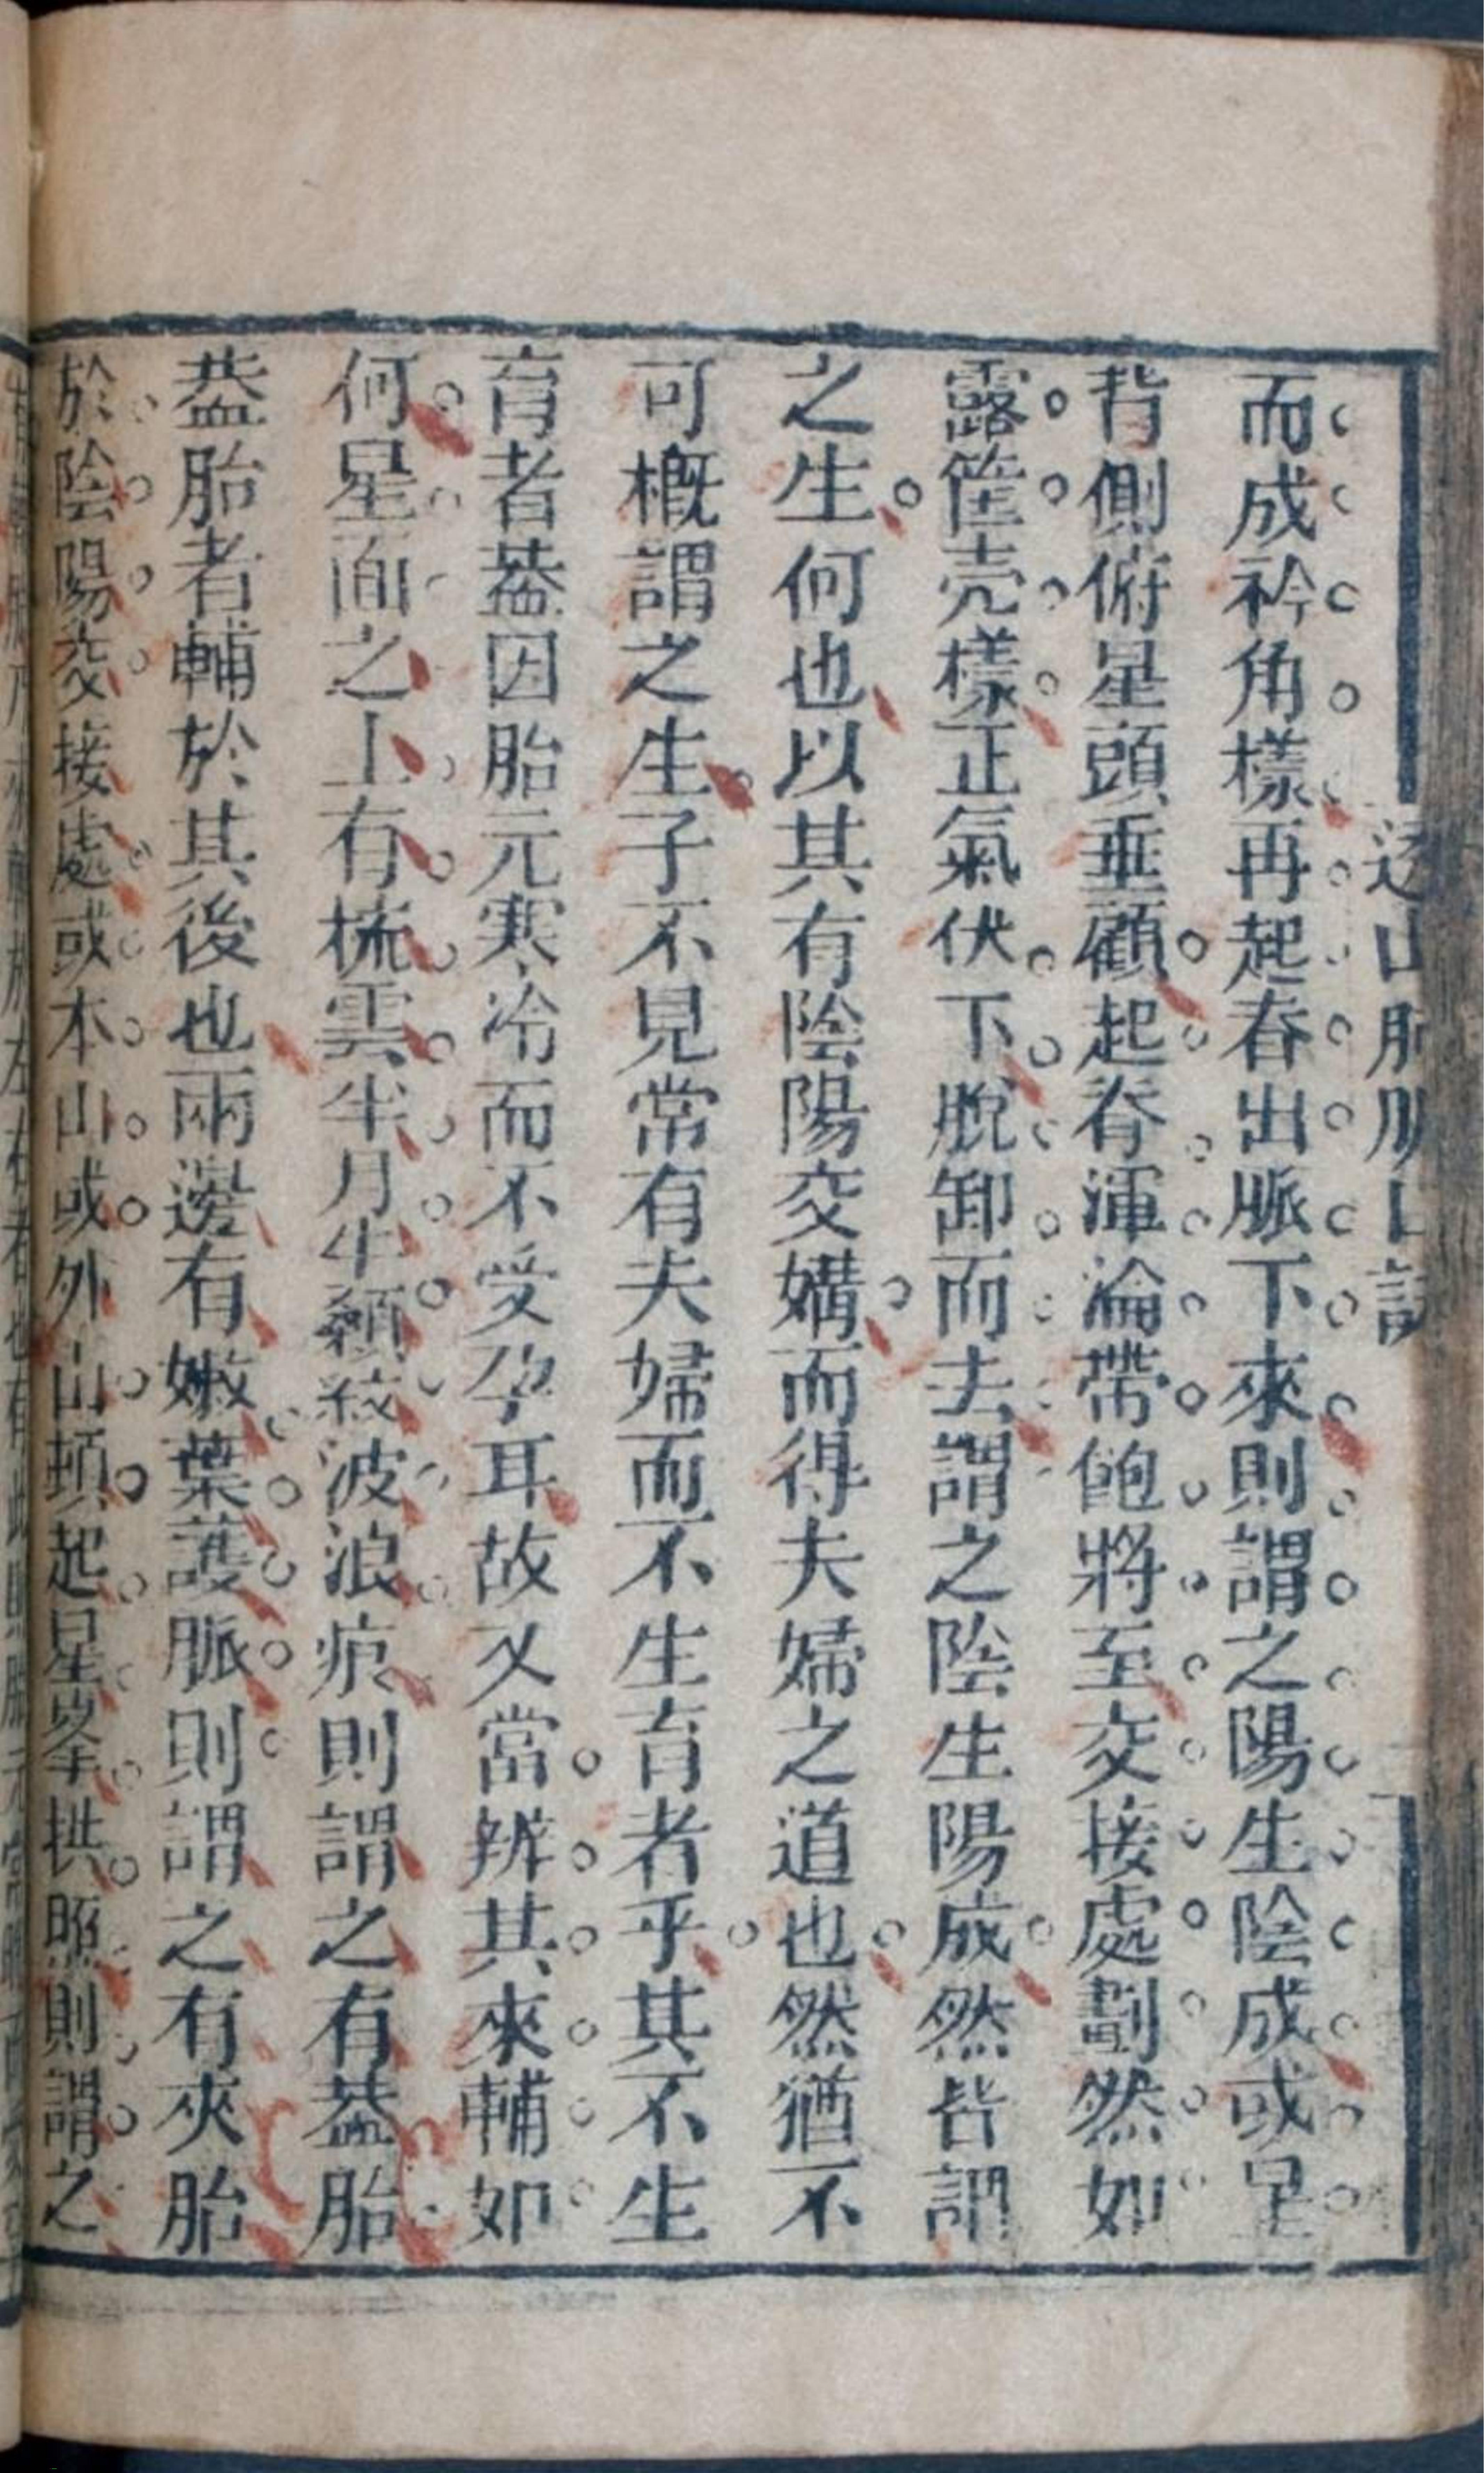 而成衿角樣再起脊出脈下來則謂之陽生陰成或星
背側俯星頭垂顧起脊渾淪帶飽將至交接處劃然如
露筐壳樣正氣伏下脫卸而去謂之陰生陽成然皆謂
之生何也以其有陰陽交媾而得夫婦之道也然猶不
可概謂之生子不見常有夫婦而不生育者乎其不生
育者葢因胎元寒冷而不受孕耳故又當辨其來輔如
何星面之上有梳雲半月牛頬紋波浪痕則謂之有葢胎
葢胎者輔於其後也兩邊有嫩葉護脈則謂之有夾胎
於陰陽交接處或本山或外山頓起星峯拱照則謂之